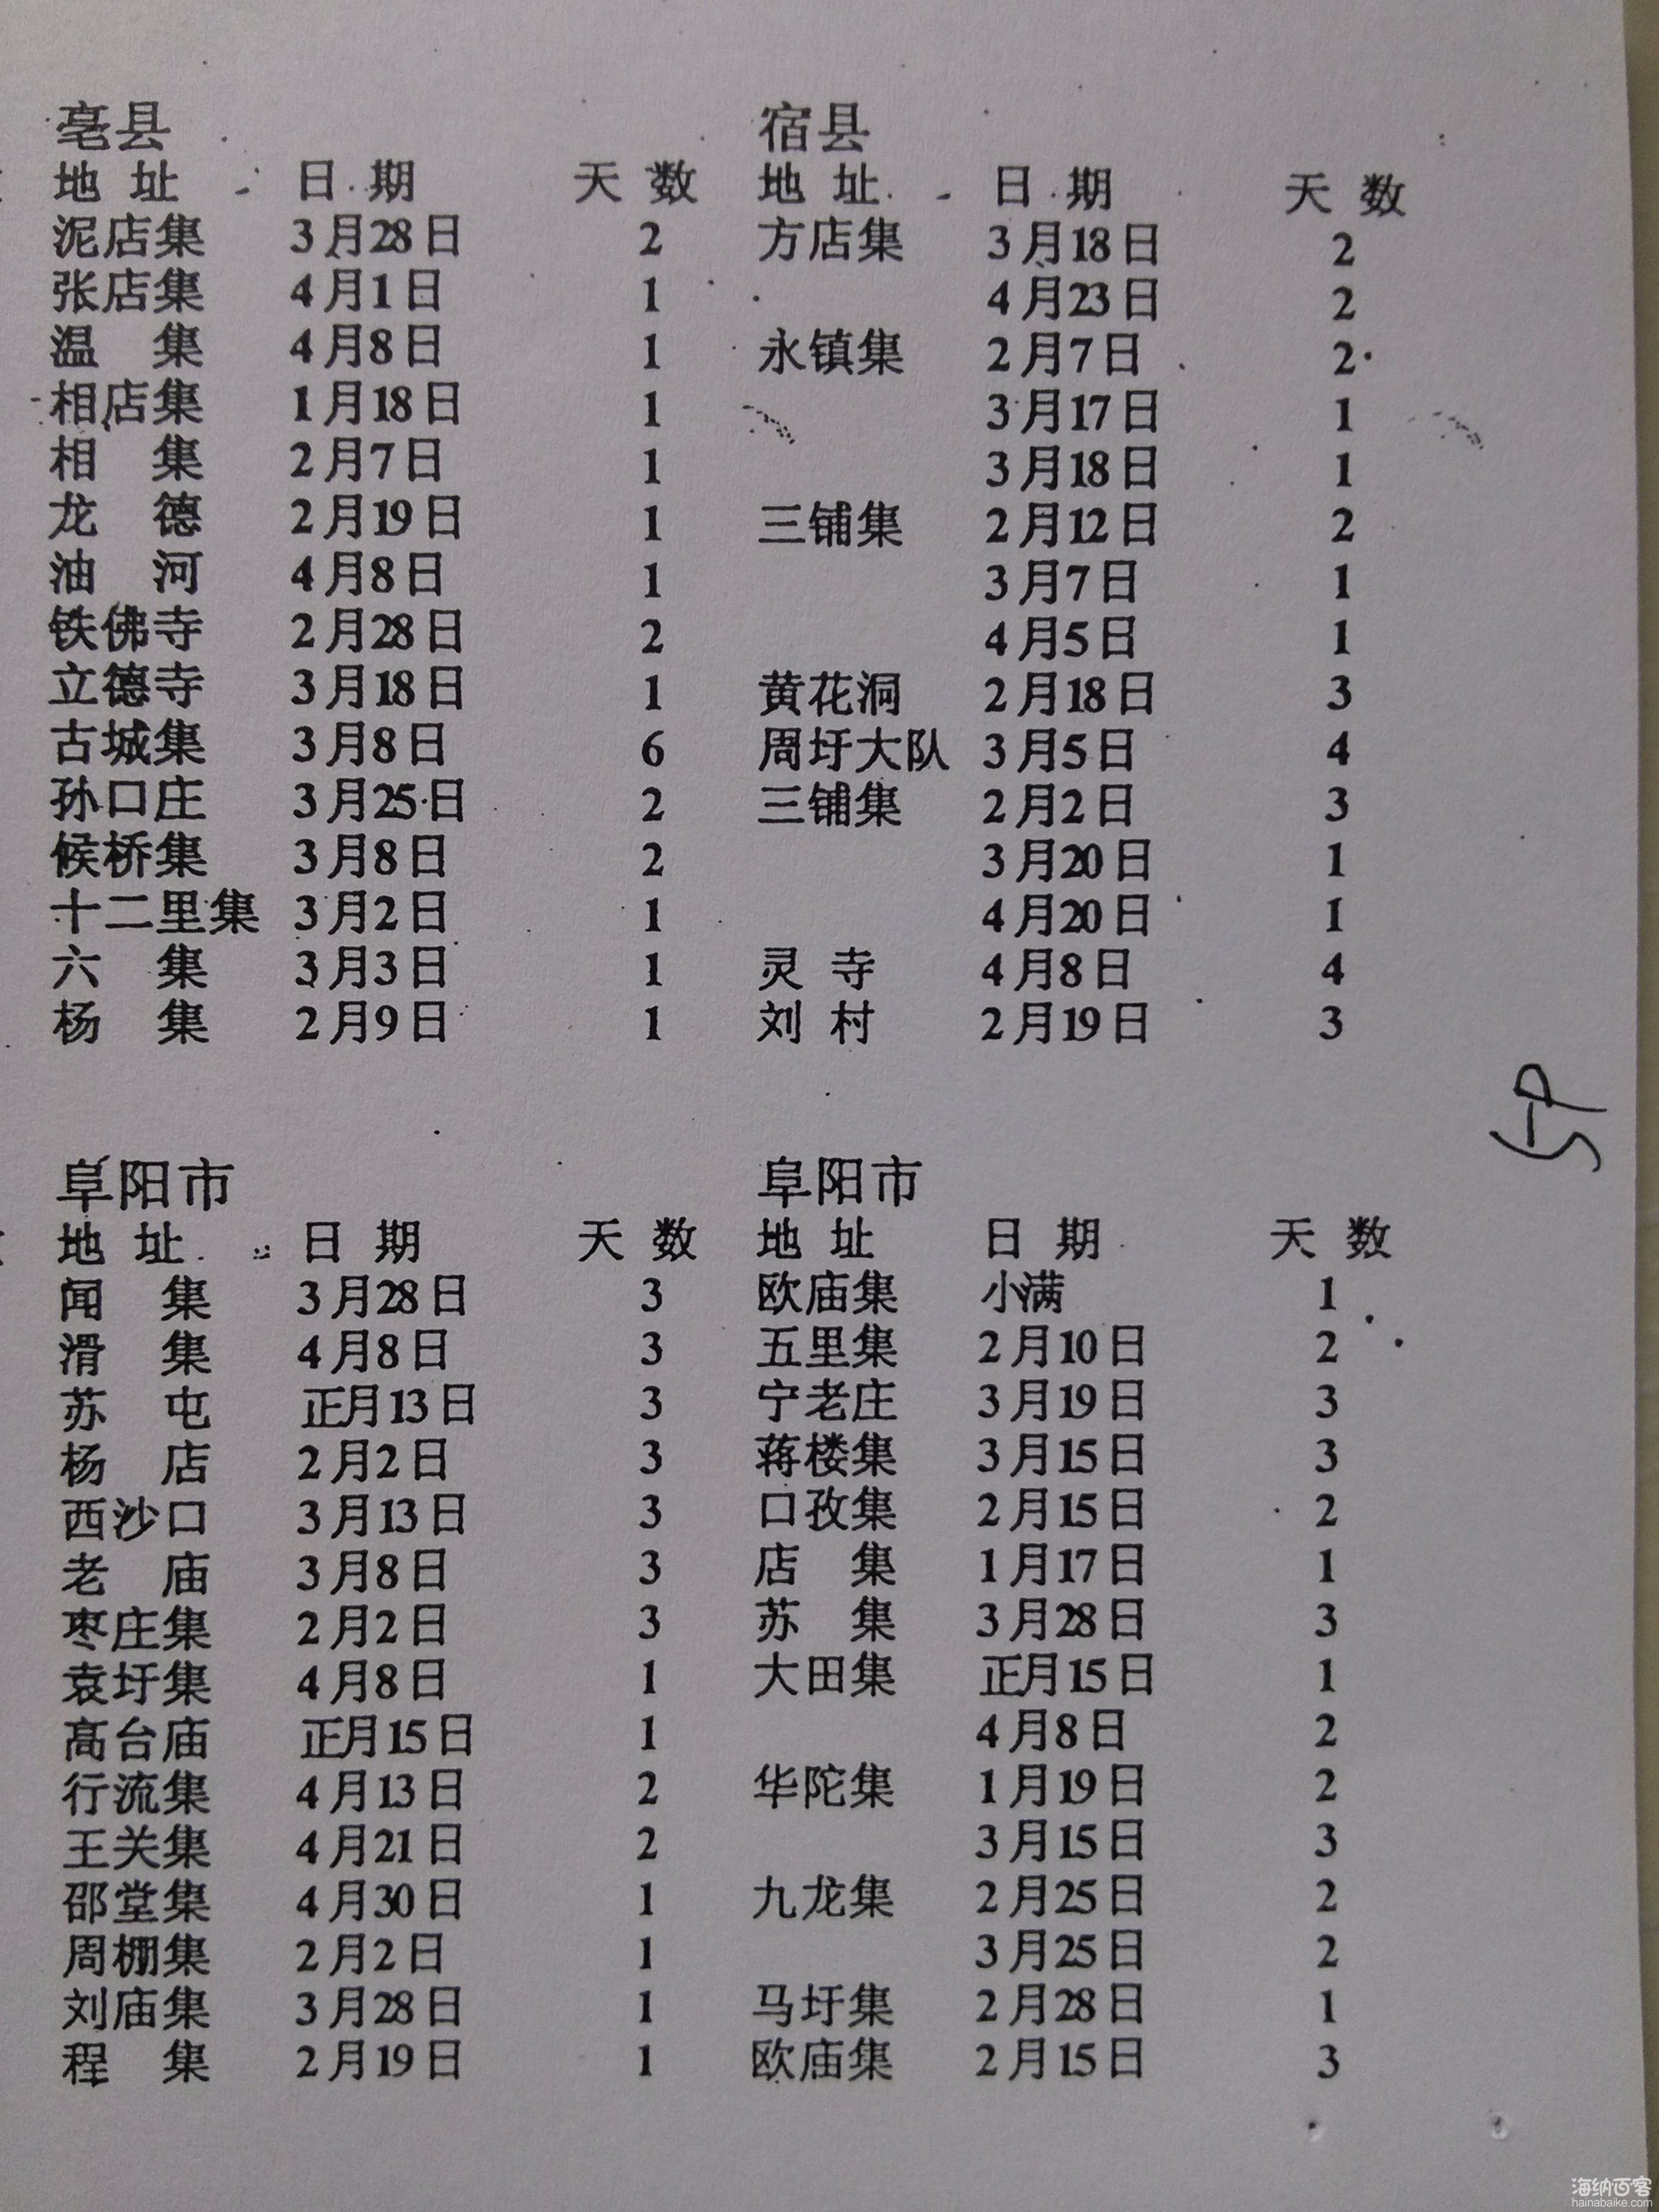 亳县
地 址 日 期 天 数
泥店集 3月28日 2
张店集 4月1日 1
温 集 4月8日 1
相店集 1月18日 1
相 集 2月7日 1
龙 德 2月19日 1
油 河 4月8日 1
铁佛寺 2月28日 2
立德寺 3月18日 1
古城集 3月8日 6
孙口庄 3月25日 2
候桥集 3月8日 2
十二里集 3月2日 1
六 集 3月3日 1
杨 集 2月9日 1
宿县
地 址 日 期 天 数
方店集 3月18日 2
4月23日 2
永镇集 2月7日 2
3月17日 1
3月18日 1
三铺集 2月12日 2
3月7日 1
4月5日 1
黄花洞 2月18日 3
周圩大队 3月5日 4
三铺集 2月2日 3
3月20日 1
4月20日 1
灵 寺 4月8日 4
刘 村 2月19日 3
阜阳市
地 址 日 期 天 数
闻 集 3月28日 3
滑 集 4月8日 3
苏 屯 正月13日 3
杨 店 2月2日 3
西沙口 3月13日 3
老 庙 3月8日 3
枣庄集 2月2日 3
袁圩集 4月8日 1
高台庙 正月15日 1
行流集 4月13日 2
王关集 4月21日 2
邵堂集 4月30日 1
周棚集 2月2日 1
刘庙集 3月28日 1
程 集 2月19日 1
阜阳市
地 址 日 期 天 数
欧庙集 小满 1
五里集 2月10日 2
宁老庄 3月19日 3
蒋楼集 3月15日 3
口孜集 2月15日 2
店 集 1月17日 1
苏 集 3月28日 3
大田集 正月15日 1
4月8日 2
华陀集 1月19日 2
3月15日 3
九龙集 2月25日 2
3月25日 2
马圩集 2月28日 1
欧庙集 2月15日 3
海纳百客
hainabaike.com